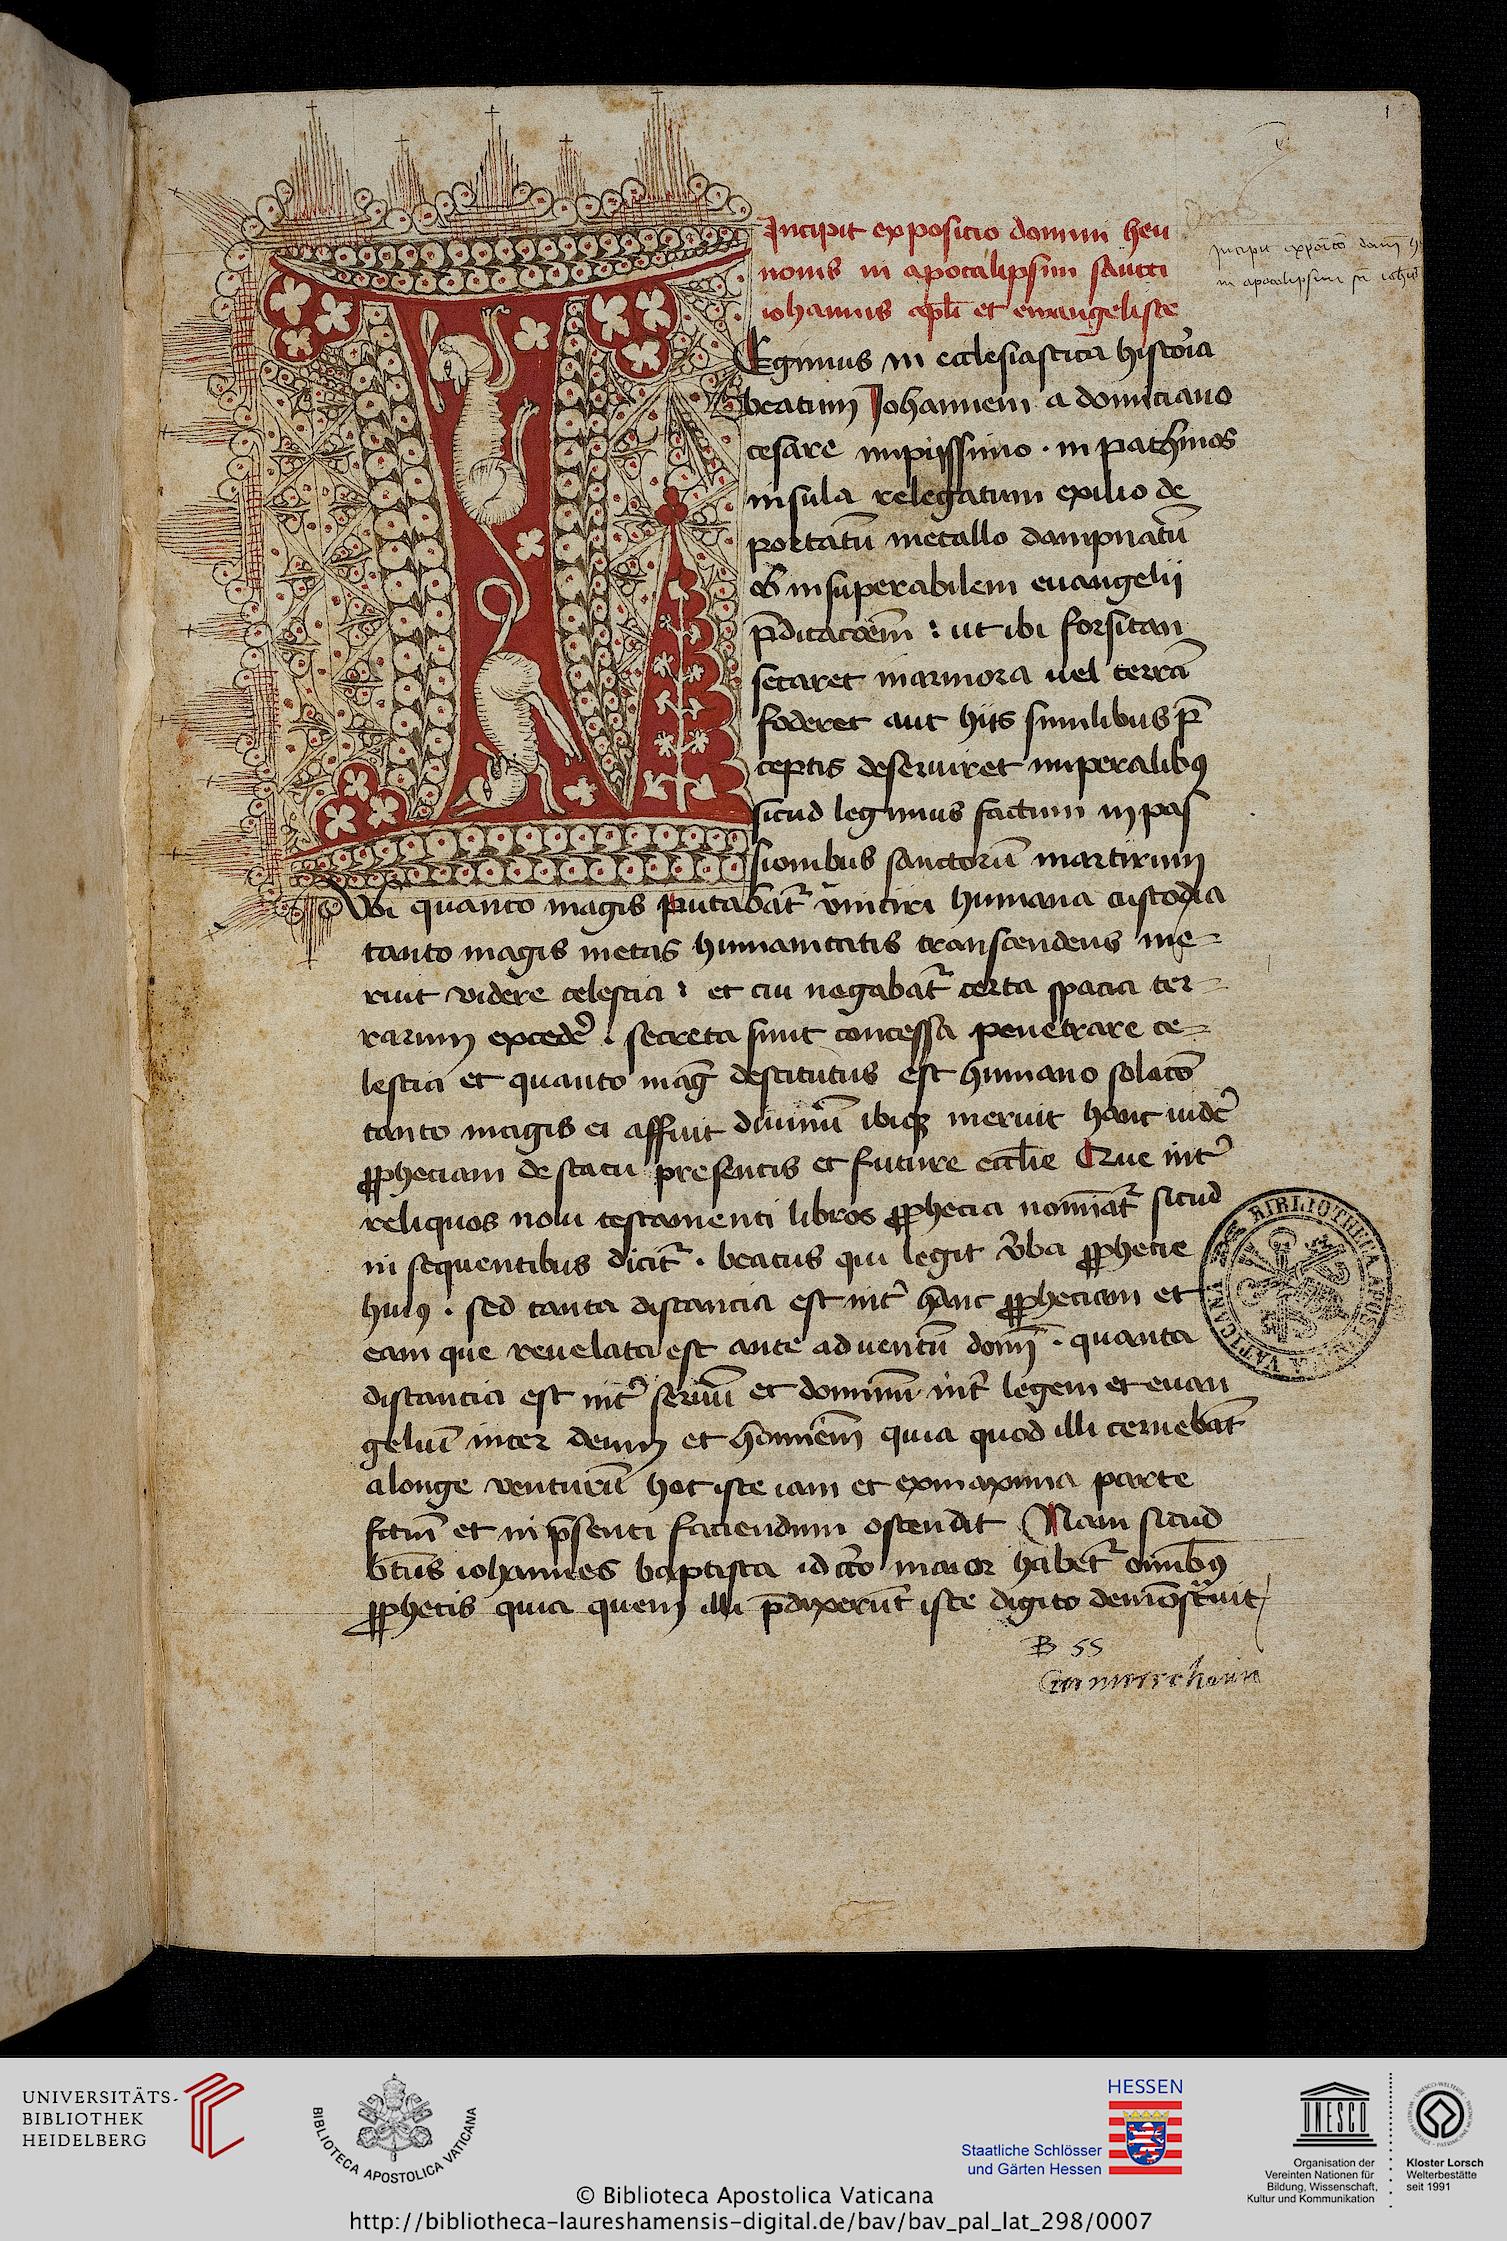 1
Incipit exposicio domini hey
monis in apocalipsim sancti
iohannis apli et ewangeliste
Incipit exposicio domi
in apocalipsim sci iohis
LEgimus in ecclesiastica historia
beatum Iohannem a domiciano
cesare impiissimo · in pathmos
insula relegatum exilio de
portatū metallo dampnatū
ob insuperabilem euangelii
p̄dicacōem : ut ibi forsitan
secaret marmora uel terrā
foderet aut hiis similibus p̄
ceptis deseruiret imperalibꝯ
sicud legimus factum in pas
sionibus sanctorū martirum
Vbi quanto magis putabat᷑ vinciri humana custodia
tanto magis metas humanitatis transcendens me=
ruit videre celestia : et cui negabat᷑ certa spacia ter=
rarum exceder̉ . secreta sunt concessa penetrare ce=
lestia et quanto mag̉ destitutus est humano solacō
tanto magis ei affuit diuinū ibiqꝫ meruit hanc uider̉
ꝓpheciam de statu presentis et future eccl̄ie Que int̉
reliquos noui testamenti libros ꝓphecia nomīat᷑ sicud
in sequentibus dicit᷑ . beatus qui legit v̉ba ꝓphecie
huiꝯ . sed tanta distancia est int̉ hanc ꝓpheciam et
eam que reuelata est ante aduentū domī . quanta
distancia est int̉ seruū et dominum int̉ legem et euan
geliū inter deum et hominēm quia quod illi cernebāt
a longe venturū hoc iste iam et ex maxima parte
fctm̄ et in p̄senti faciendum ostendit Nam sicud
btūs iohannes baptista idcc̄o maior habet᷑ omībꝯ
ꝓphetis quia quem illi p̄dixerūt iste digito demōst̉uit
B 55
BIBLIOTHECA APOSTOLICA VATICANA
UNIVERSITÄTS-
BIBLIOTHEK
HEIDELBERG
BIBLIOTECA APOSTOLICA VATICANA
HESSEN
Staatliche Schlösser
und Gärten Hessen
UNESCO
Organisation der
Vereinten Nationen für
Bildung, Wissenschaft,
Kultur und Kommunikation
Kloster Lorsch
Welterbestätte
seit 1991
© Biblioteca Apostolica Vaticana
http://bibliotheca-laureshamensis-digital.de/bav/bav_pal_lat_298/0007